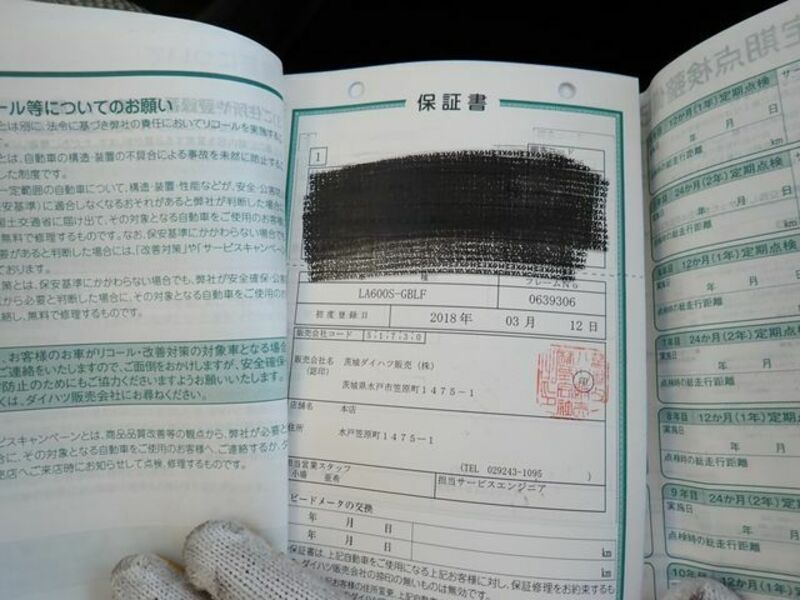 ール等についてのお願い
とは別に、法令に基づき弊社の責任においてリコールを実施するこ
とは、自動車の構造・装置の不具合による事故を未然に防止するこ
した制度です。
一定範囲の自動車について、構造・装置・性能などが、安全・公害防
安基準）に適合しなくなるおそれがあると弊社が判断した場合に
国土交通省に届け出て、その対象となる自動車をご使用のお客様
無料で修理するものです。なお、保安基準にかかわらない場合で
要があると判断した場合には、「改善対策」や「サービスキャンペーン
ております。
策とは、保安基準にかかわらない場合でも、弊社が安全確保・公害
から必要と判断した場合に、その対象となる自動車をご使用のお
絡し、無料で修理するものです。
、お客様のお車がリコール・改善対策の対象車となる場合
ご連絡をいたしますので、ご面倒をおかけしますが、安全確保
防止のためにもご協力くださいますようお願いいたします。
くは、ダイハツ販売会社にお尋ねください。
ビスキャンペーンとは、商品品質改善等の観点から、弊社が必要と
合に、その対象となる自動車をご使用のお客様へ、ご連絡するか、ダ
売店へご来店時にお知らせして点検、修理するものです。
保証書
1
フレームNo
LA600S-GBLF 0639306
初度登録日 2018年 03月 12日
販売会社コード 51730
販売会社名 茨城ダイハツ販売（株）
（認印）
茨城県水戸市笠原町1475-1
店舗名 本店
住所 水戸笠原町1475-1
(TEL 029243-1095 )
担当営業スタッフ 担当サービスエンジニア
小場 亜希
ピードメータの交換
年 月 日 km
年 月 日 km
保証書は、上記自動車をご使用になる上記お客様に対し、保証修理をお約束するも
ダイハツ販売会社の捺印の無いものは無効です。
定期点検整
12か月(1年)定期点検
実施日 年 月 日
点検時の総走行距離 km
24か月(2年)定期点検
年 月 日
の総走行距離 km
12か月(1年)定期点検
年 月 日
総走行距離 km
24か月(2年)定期点検
年 月 日
点検時の総走行距離
8年目 12か月(1年)定期
実施日 年 月
点検時の総走行距離
9年目 24か月(2年)定期
実施日 年 月
点検時の総走行距離
10年目 12か月(1年)定